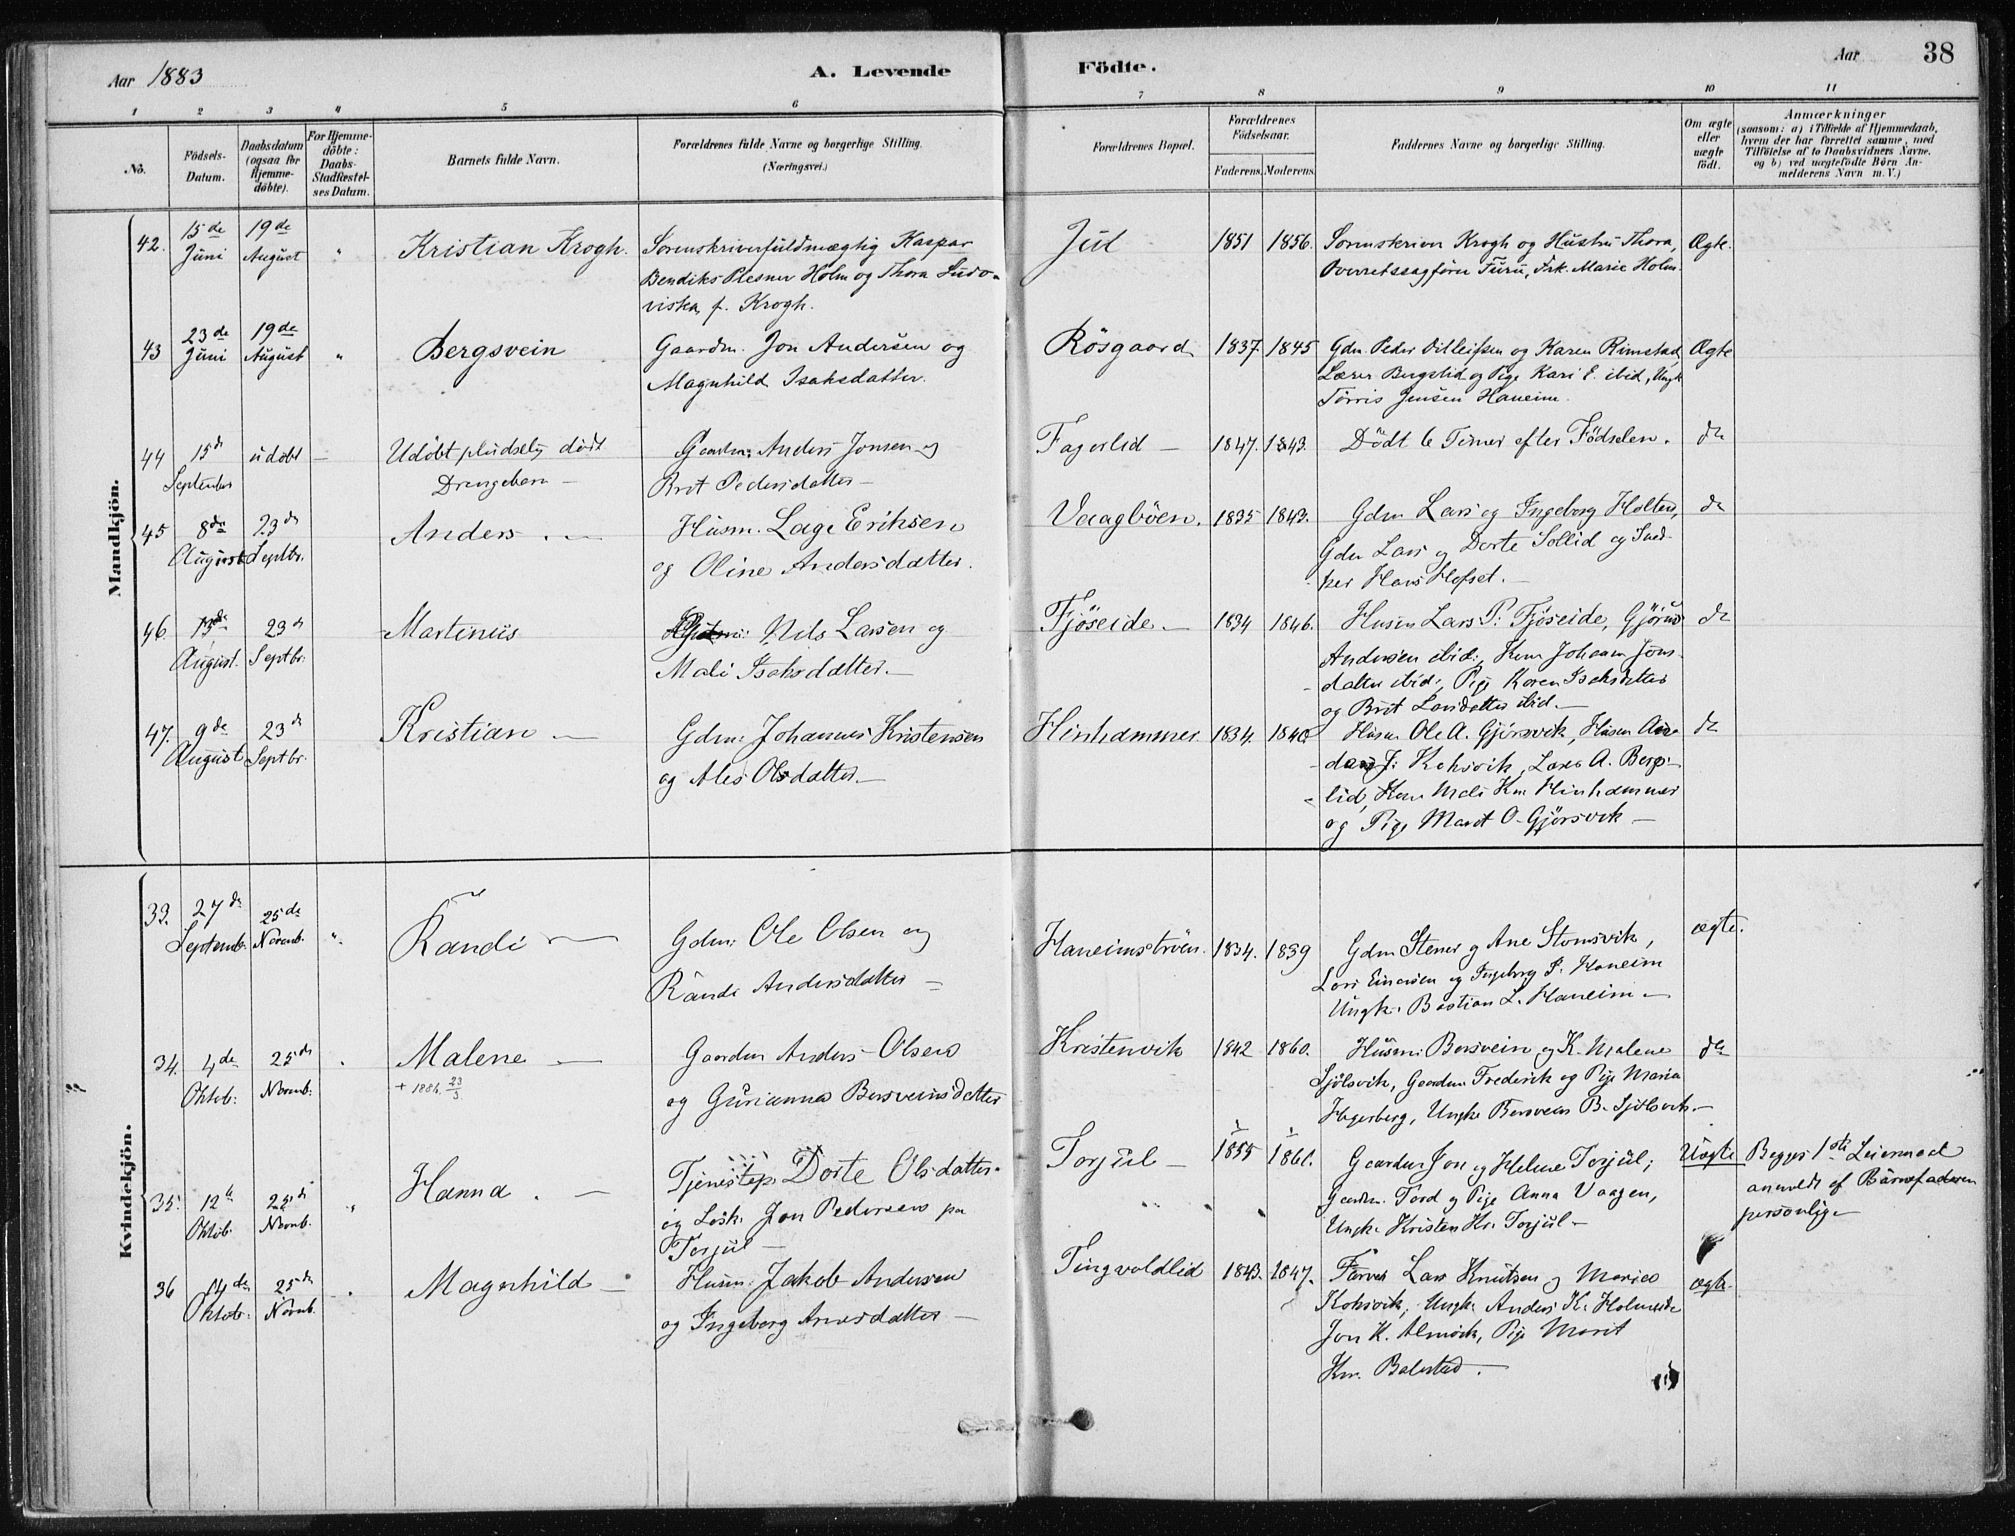 Aar 1883
A. Levende
Födte.
Aar
38
1 2 3 4 5 6 7 8 9 10 11
No.
Födsels-Datum.
Daabsdatum (ogsaa for Hjemme-döbte).
For Hjemme-döbte: Daabs-Stadfæstel-ses Datum.
Barnets fulde Navn.
Forældrenes fulde Navne og borgerlige Stilling.
(Næringsvei.)
Forældrenes Bopæl.
Forældrenes Födselsaar.
Faderens. Moderens.
Faddernes Navne og borgerlige Stilling.
Om ægte eller uægte födt.
Anmærkninger
(saasom: a) i Tilfælde af Hjemmedaab,
hvem der har forrettet samme, med
Tilföielse af to Daabsvidners Navne,
og b) ved uægtefödte Börn An-
melderens Navn m. V.)
Mandkjön.
42. 15de Juni 19de August " Kristian Krogh. Sorenskriverfuldmægtig Kaspar
Bendiks Plesner Holm og Thora Ludo-
viska, f. Krogh.
Jul 1851 1856. Sorenskriver Krogh og Hustru Thora, Ægte.
Overretssagfører Furu, Frk. Marie Holm.
43 23de Juni 19de August " Bergsvein Gaardm. Jon Andersen og
Magnhild Isaksdatter.
Rösgaard 1837. 1845 Gdm. Peder Ditleifsen og Karen Rimstad, Ægte
Lærer Bergslid og Pige Kari E. ibid, Ungk
Törris Jensen Haneim.
44 15de September udöbt — Udöbt pludselig dödt
Drengebarn —
Gaardm: Anders Jonsen og
Brit Pedersdatter —
Fagerlid — 1847. 1843. Dödt 6 Timer efter Födselen. do
45 8de August 23de Septbr. Anders. — Husm. Lage Eriksen
og Oline Andersdatter.
Vaagböen. 1835 1843. Gdm Lars og Ingeborg Holten, do
Gdm Lars og Dorte Sollid og Sned-
ker Hans Hofset. —
46. 13de August. 23de Septbr. Martinus Nils Larsen og
Mali Isaksdatter. —
Fjöseide. — 1834 1846. Husm Lars P. Fjöseide, do
Andersen ibid:, Kone Johanna Jons-
datter ibid:, Pige Karen Isaksdatter
og Brit Larsdatter ibid. —
47. 9de August 23de Septbr. Kristian — Gdm: Johannes Kristensen
og Ales Olsdatter. —
Hinhammer 1834. 1840 Husm Ole A. Gjörsvik, Husm do
J: Koksvik, Lars A. Bergs-
lid, Kone Mali Kr. Hinhammer
og Pige Marit O. Gjörsvik —
Kvindekjön.
33. 27de Septemb. 25de Novmb. ". Randi — Gdm: Ole Olsen og
Randi Andersdatter —
Haneimströen. 1834. 1839 Gdm Stener og Ane Stomsvik, ægte.
Lars Einersen og Ingeborg P. Haneim
Ungk. Bastian L. Haneim —
34. 4de Oktob: 25de Novmb: . Malene —
+ 1884. 23/3
Gaardm Anders Olsen
og Gurianna Bersveinsdatter
Kristenvik 1842 1860. Husm: Bersvein og K. Malene do
Sjölsvik, Gaardm. Frederik og Pige Maria
Hegerberg, Ungke Bersvein B. Sjölsvik. —
35. 12te Oktob. 25de Novmb. " Hanna . — Tjenestep. Dorte Olsdatter.
og Losk. Jon Pedersen paa
Torjul —
Torjul — 1855 1861. Gaardm Jon og Helene Torjul; Uægte Begges 1ste Leiermaal
Gaardm. Tord og Pige Anna Vaagen, anmeldt af Barnefaderen
Ungk. Kristen Kr. Torjul — personlig —
36 14de Oktob: 25de Novmb. . Magnhild — Husm: Jakob Andersen
og Ingeborg Arnesdatter —
Tingvoldlid 1843. 1847. Farver Lars Knutsen og Marie ægte.
Koksvik, Ungk: Anders K. Holmeide
Jon K. Almvik, Pige Marit
Kr. Bolestad. —